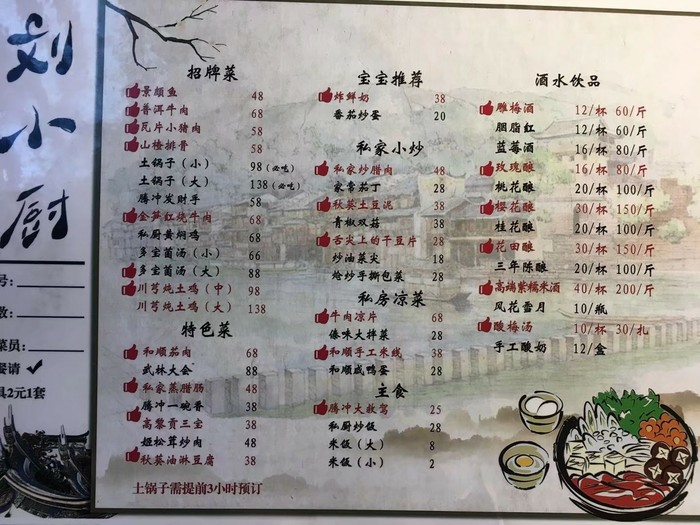 刘小厨
号:
数:
菜员:
餐请 ✔
具2元1套
招牌菜
景颇鱼 48
普洱牛肉 68
瓦片小猪肉 58
山楂排骨 58
土锅子(小) 98(必吃)
土锅子(大) 138(必吃)
腾冲发财手 58
金笋红烧牛肉 68
私厨黄焖鸡 68
多宝菌汤(小) 66
多宝菌汤(大) 88
川芎炖土鸡(中) 98
川芎炖土鸡(大) 138
特色菜
和顺茄肉 68
武林大会 88
私家蒸腊肠 48
腾冲一碗香 38
高黎贡三宝 38
姬松茸炒肉 48
秋葵油淋豆腐 38
土锅子需提前3小时预订
宝宝推荐
炸鲜奶 38
番茄炒蛋 20
私家小炒
私家炒腊肉 48
家常茄丁 28
秋葵土豆泥 38
青椒双菇 38
舌尖上的干豆片 28
炒油菜尖 18
炝炒手撕包菜 28
私房凉菜
牛肉凉片 68
傣味大拌菜 28
和顺手工米线 38
和顺咸鸭蛋 28
主食
腾冲大救驾 25
私厨炒饭 28
米饭(大) 8
米饭(小) 2
酒水饮品
雕梅酒 12/杯 60/斤
胭脂红 12/杯 60/斤
蓝莓酒 16/杯 80/斤
玫瑰酿 16/杯 80/斤
桃花酿 20/杯 100/斤
樱花酿 30/杯 150/斤
桂花酿 20/杯 100/斤
花田酿 30/杯 150/斤
三年陈酿 20/杯 100/斤
高端紫糯米酒 40/杯 200/斤
风花雪月 10/瓶
酸梅汤 10/杯 30/扎
手工酸奶 12/盒